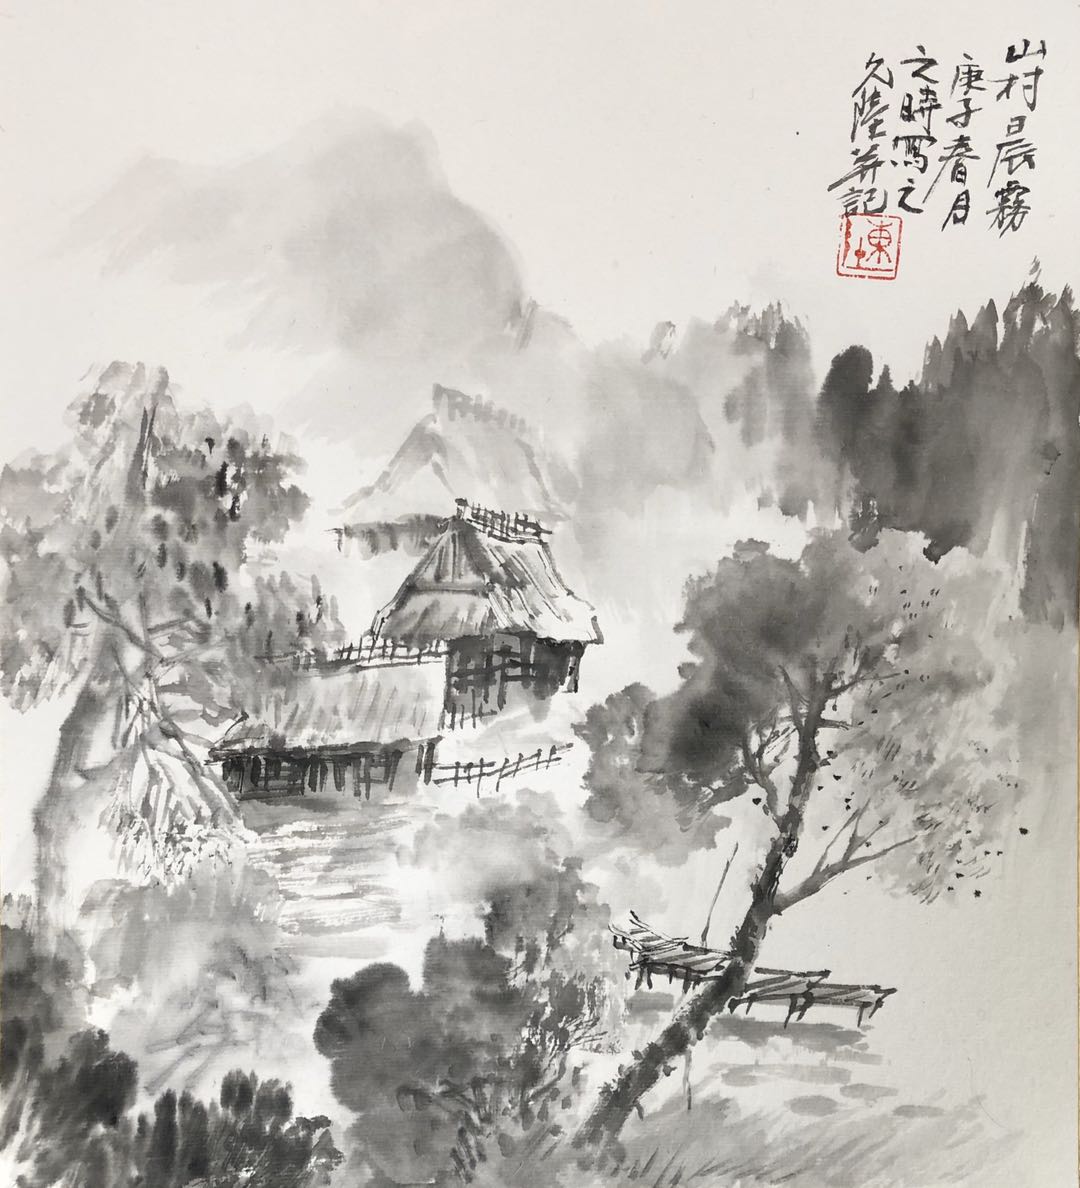 山村晨霧
庚子春月
之時寫之
久陸并記